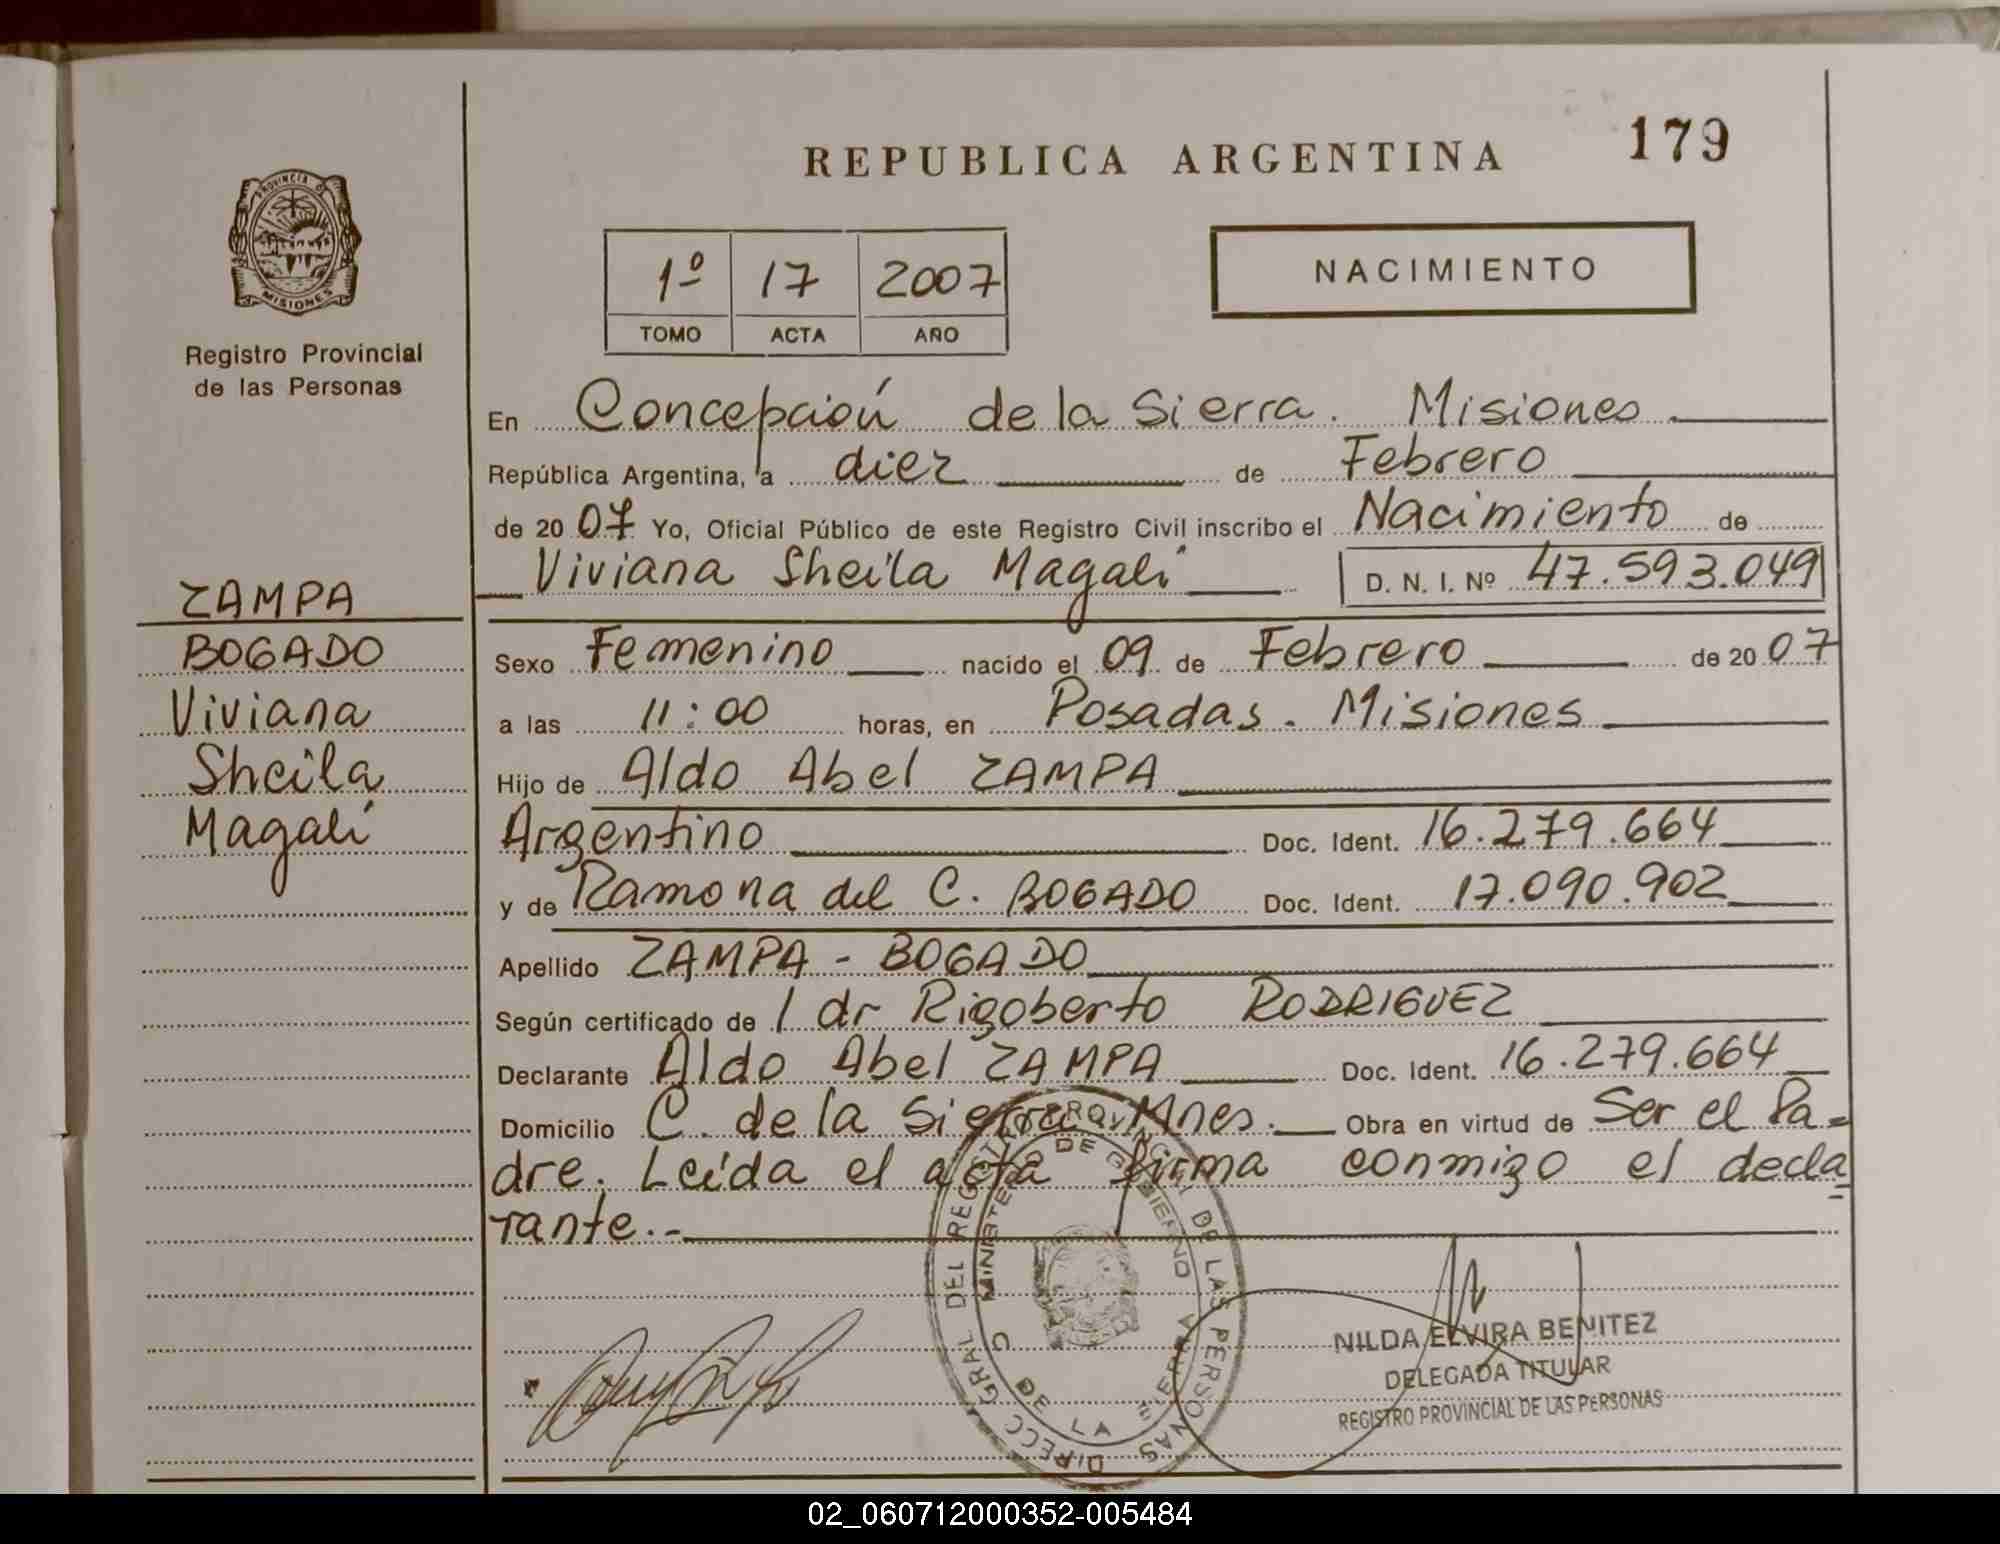 REPUBLICA ARGENTINA
179
PROVINCIA DE
MISIONES
Registro Provincial
de las Personas
1º 17 2007
TOMO ACTA AÑO
NACIMIENTO
En Concepción de la Sierra. Misiones
República Argentina, a diez de Febrero
de 2007 Yo, Oficial Público de este Registro Civil inscribo el Nacimiento de
Viviana Sheila Magalí D. N. I. Nº 47.593.049
ZAMPA
BOGADO
Viviana
Sheila
Magalí
Sexo Femenino nacido el 09 de Febrero de 2007
a las 11:00 horas, en Posadas. Misiones
Hijo de Aldo Abel ZAMPA
Argentino Doc. Ident. 16.279.664
y de Ramona del C. BOGADO Doc. Ident. 17.090.902
Apellido ZAMPA - BOGADO
Según certificado de l dr Rigoberto RODRIGUEZ
Declarante Aldo Abel ZAMPA Doc. Ident. 16.279.664
Domicilio C. de la Sierra Mnes. Obra en virtud de Ser el Pa=
dre. Leída el acta firma conmigo el decla=
rante.-
DIRECC GRAL DEL REGISTRO PROVINCIAL DE LAS PERSONAS
MINISTERIO DE GOBIERNO
C DE LA SIERRA
NILDA ELVIRA BENITEZ
DELEGADA TITULAR
REGISTRO PROVINCIAL DE LAS PERSONAS
02_060712000352-005484